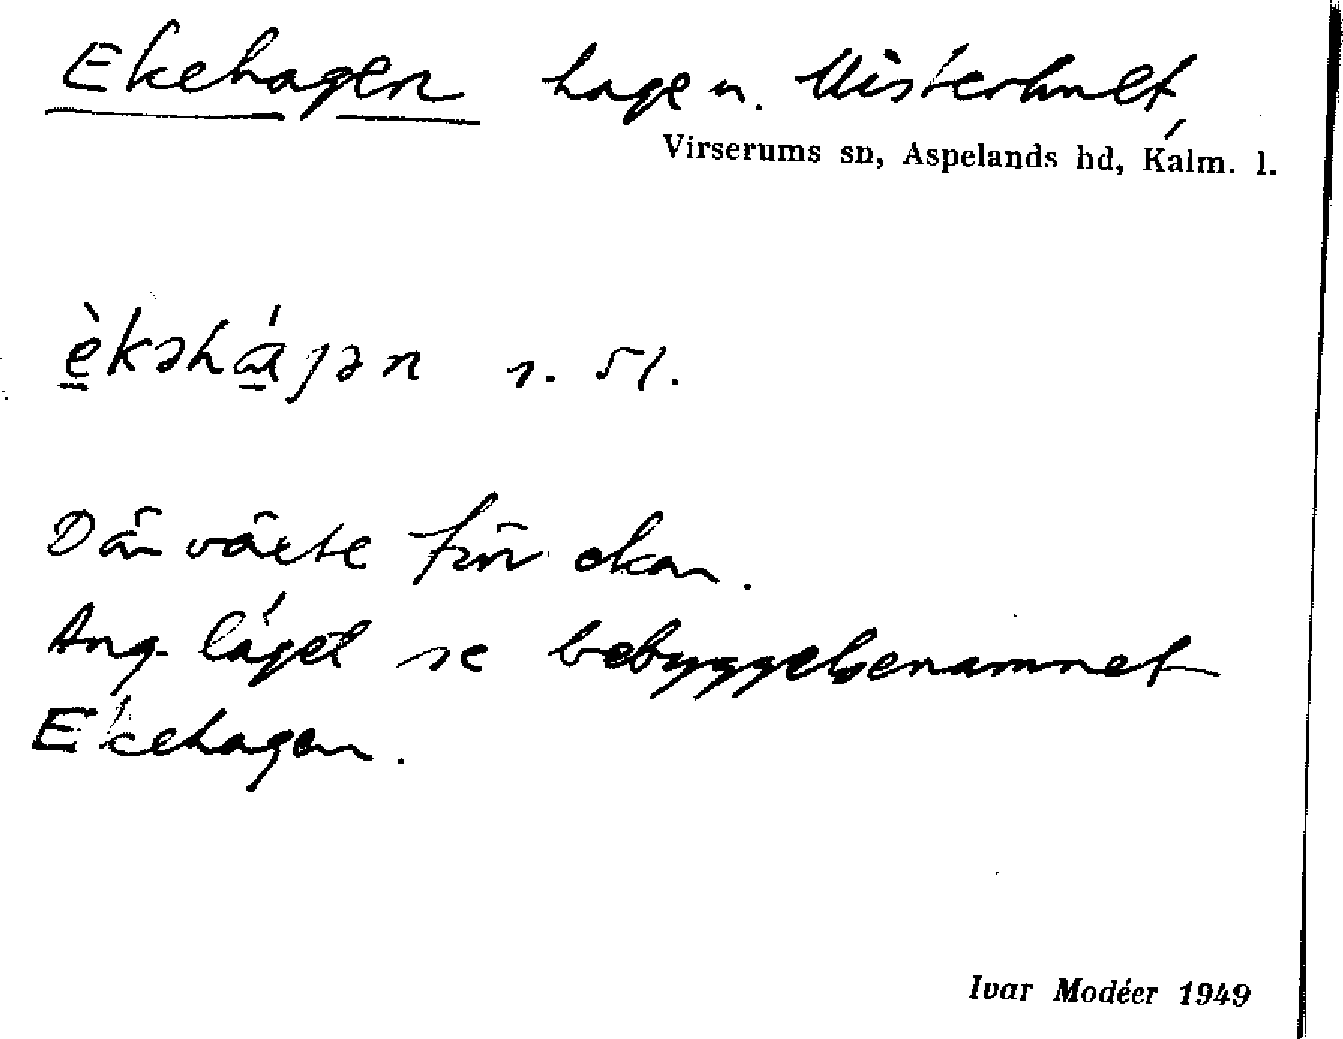 Ekehagen hage u. Misterhult,
Virserums sn, Aspelands hd, Kalm. l.
è̠kəhá̠jən s. 51.
Där växte för ekar.
Ang. läget se bebyggelsenamnet
Ekehagen.
Ivar Modéer 1949